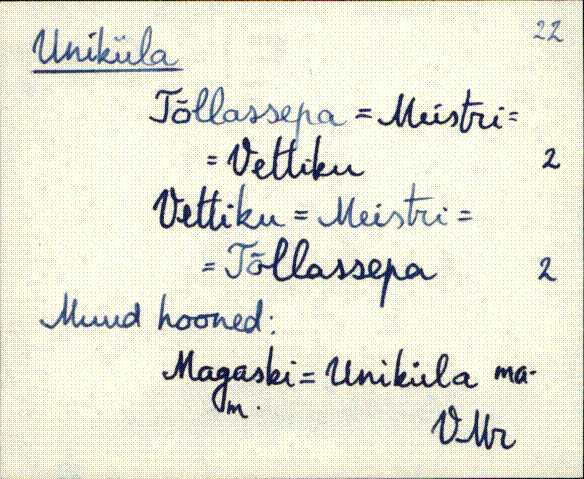 22
Uniküla
Tõllassepa = Meistri =
= Vettiku 2
Vettiku = Meistri =
= Tõllassepa 2
Muud hooned:
Magaski = Uniküla ma-
m.
VMr